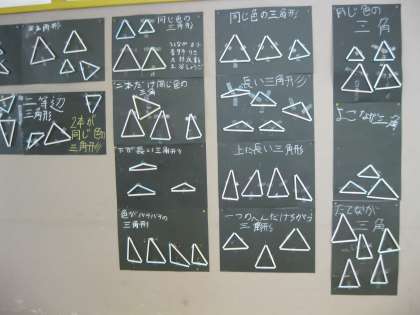 三角形
二等辺
三角形
2本が
同じ色の
三角形
同じ色の
三角形
二本だけ同じ色の
三角
下が長い三角形
色がバラバラの
三角形
同じ色の三角形
長い三角形
上に長い三角形
一つのへんだけちがう
三角形
同じ色の
三角
よこなが三角
たてなが
三角